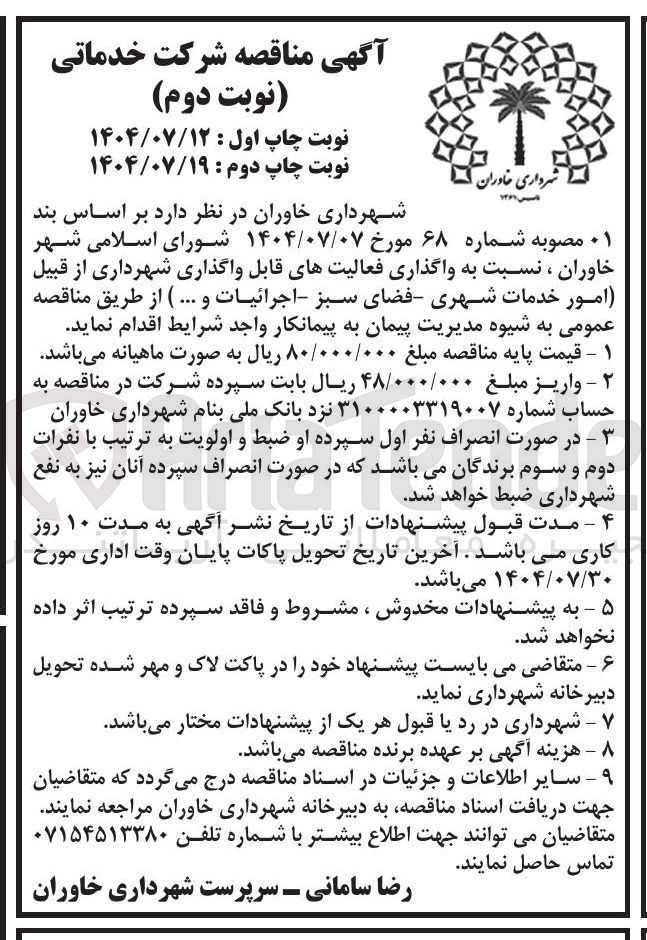 آگهی مناقصه شرکت خدماتی
(نوبت دوم)
نوبت چاپ اول : ۱۴۰۴/۰۷/۱۲
نوبت چاپ دوم : ۱۴۰۴/۰۷/۱۹
شهرداری خاوران
تاسیس:۱۳۶۱
شهرداری خاوران در نظر دارد بر اساس بند
۰۱ مصوبه شماره ۶۸ مورخ ۱۴۰۴/۰۷/۰۷ شورای اسلامی شهر
خاوران ، نسبت به واگذاری فعالیت های قابل واگذاری شهرداری از قبیل
(امور خدمات شهری -فضای سبز -اجرائیات و ... ) از طریق مناقصه
عمومی به شیوه مدیریت پیمان به پیمانکار واجد شرایط اقدام نماید.
۱ - قیمت پایه مناقصه مبلغ ۸۰/۰۰۰/۰۰۰ ریال به صورت ماهیانه می‌باشد.
۲ - واریز مبلغ ۴۸/۰۰۰/۰۰۰ ریال بابت سپرده شرکت در مناقصه به
حساب شماره ۳۱۰۰۰۰۳۳۱۹۰۰۷ نزد بانک ملی بنام شهرداری خاوران
۳ - در صورت انصراف نفر اول سپرده او ضبط و اولویت به ترتیب با نفرات
دوم و سوم برندگان می باشد که در صورت انصراف سپرده آنان نیز به نفع
شهرداری ضبط خواهد شد.
۴ - مدت قبول پیشنهادات از تاریخ نشر آگهی به مدت ۱۰ روز
کاری می باشد . آخرین تاریخ تحویل پاکات پایان وقت اداری مورخ
۱۴۰۴/۰۷/۳۰ می‌باشد.
۵ - به پیشنهادات مخدوش ، مشروط و فاقد سپرده ترتیب اثر داده
نخواهد شد.
۶ - متقاضی می بایست پیشنهاد خود را در پاکت لاک و مهر شده تحویل
دبیرخانه شهرداری نماید.
۷ - شهرداری در رد یا قبول هر یک از پیشنهادات مختار می‌باشد.
۸ - هزینه آگهی بر عهده برنده مناقصه می‌باشد.
۹ - سایر اطلاعات و جزئیات در اسناد مناقصه درج می‌گردد که متقاضیان
جهت دریافت اسناد مناقصه، به دبیرخانه شهرداری خاوران مراجعه نمایند.
متقاضیان می توانند جهت اطلاع بیشتر با شماره تلفن ۰۷۱۵۴۵۱۳۳۸۰
تماس حاصل نمایند.
رضا سامانی ــ سرپرست شهرداری خاوران
AriaTende